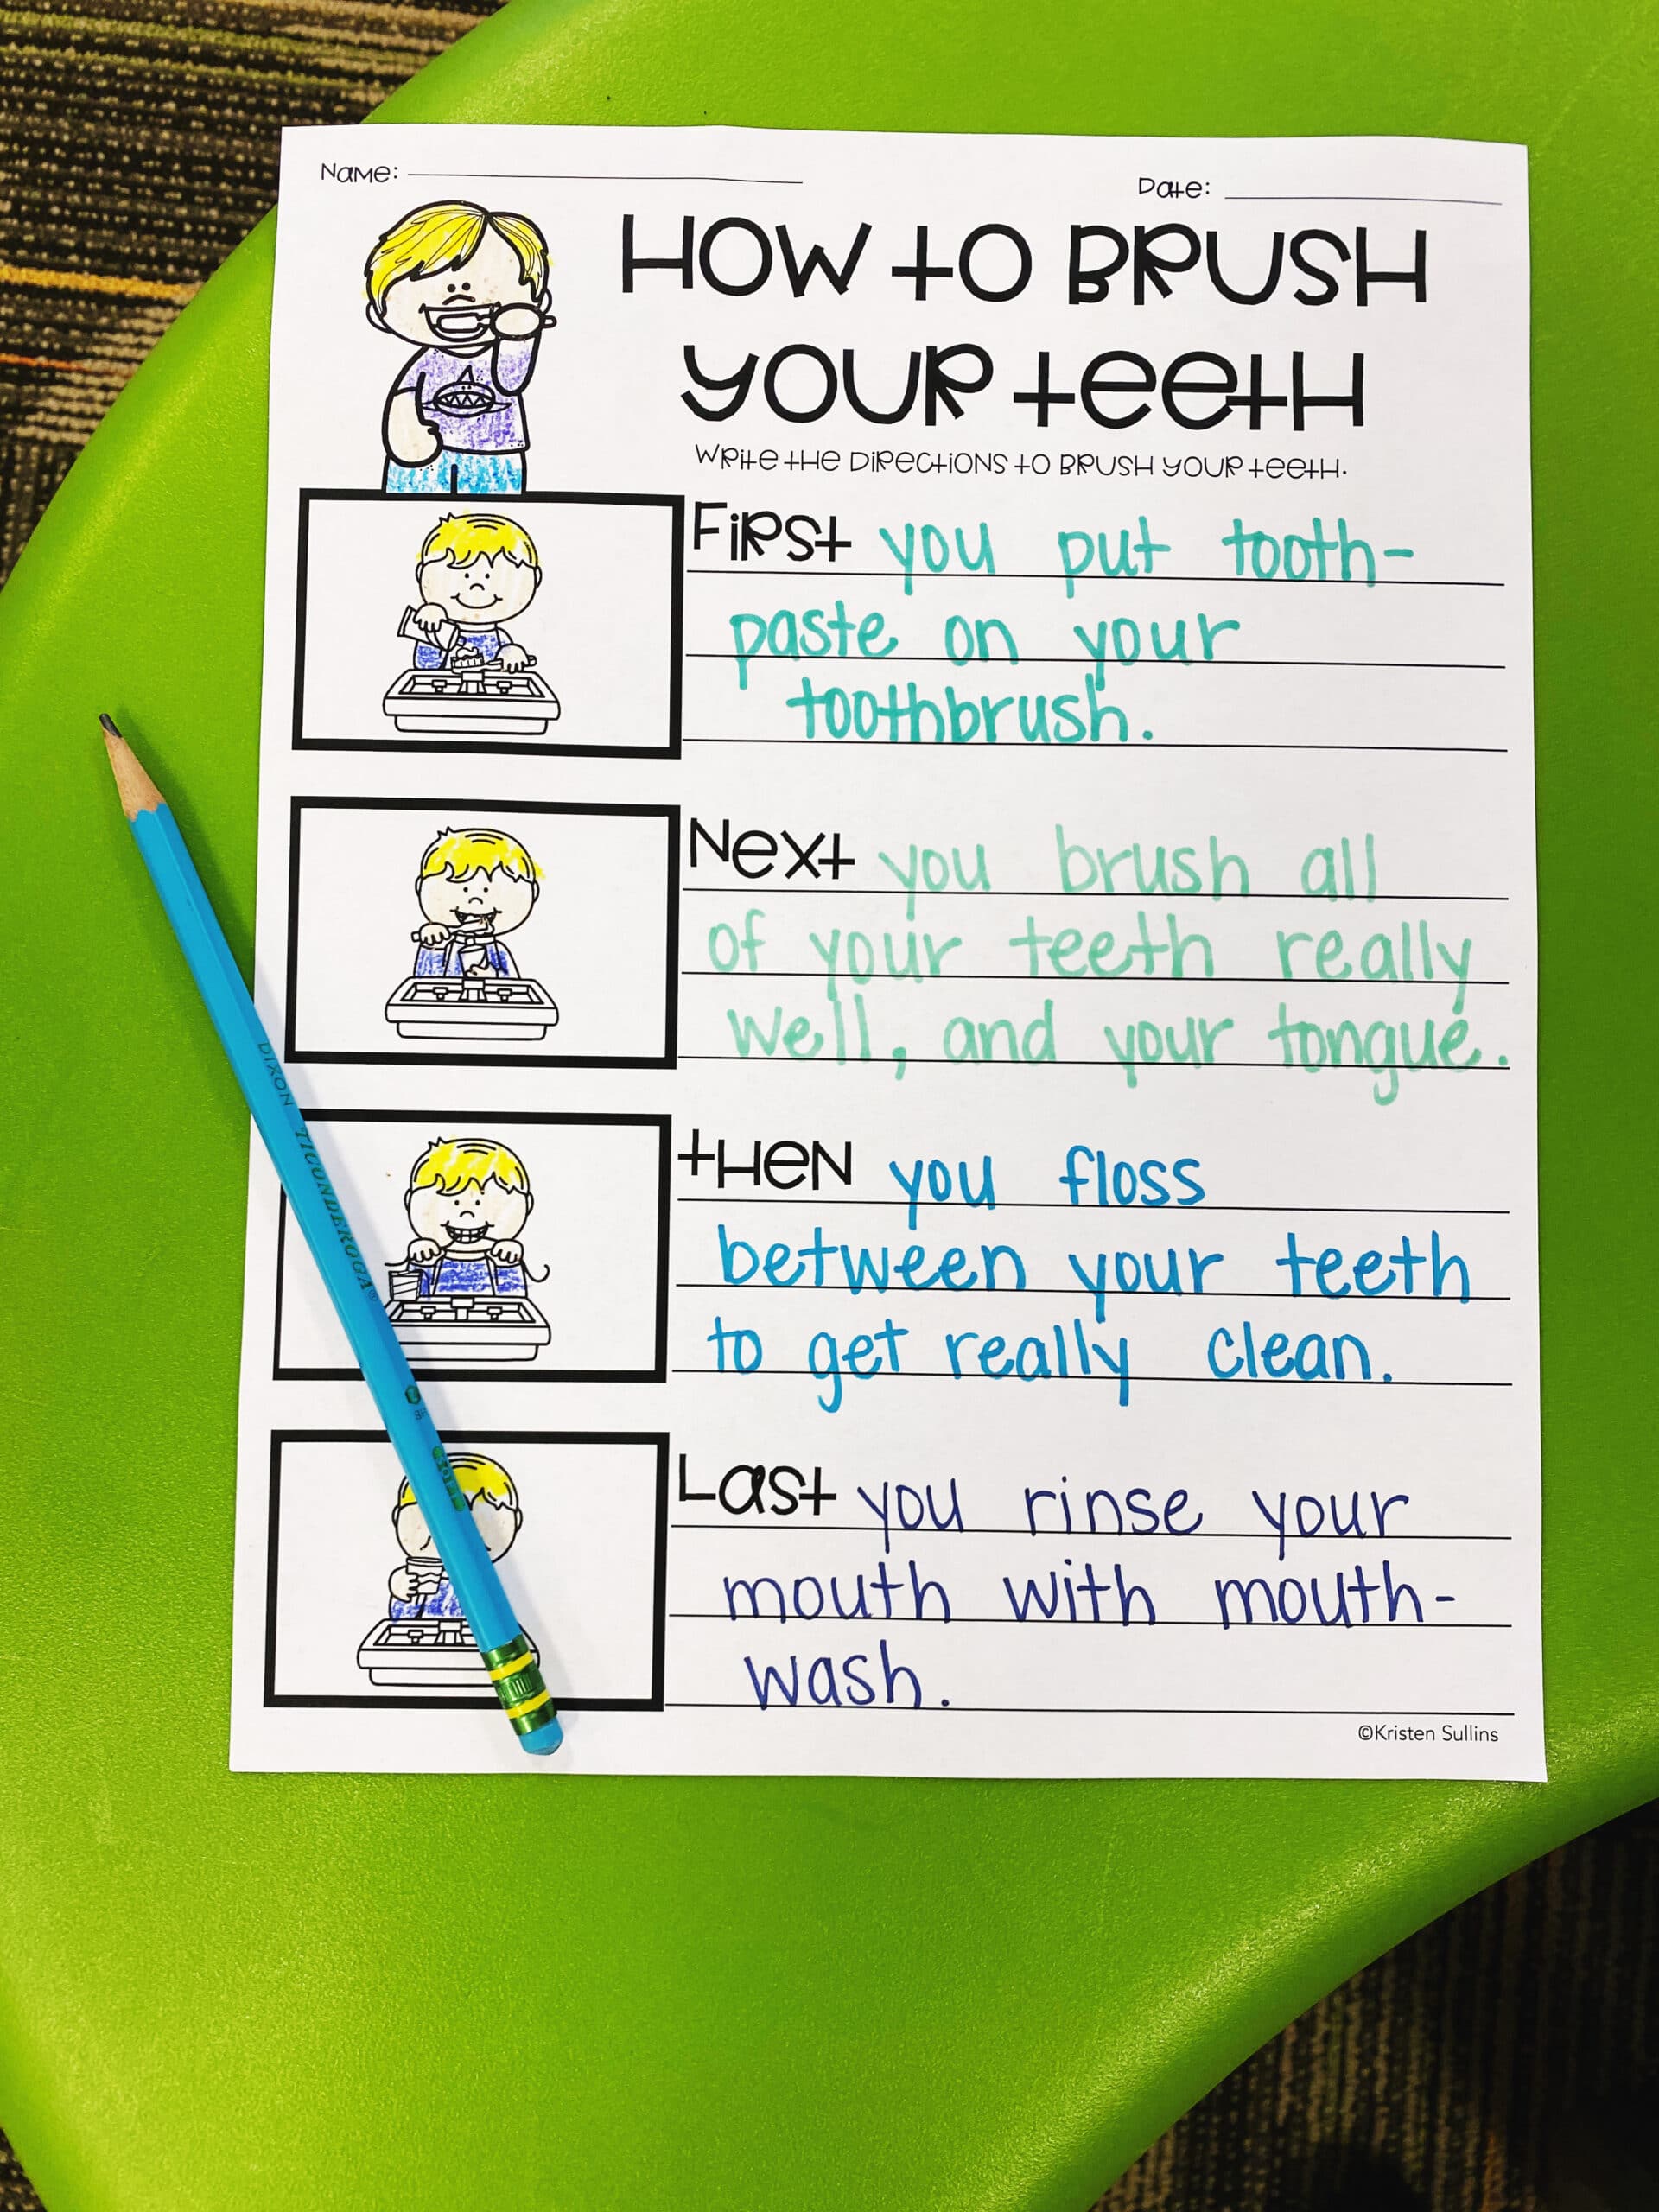 Name:
Date:
How to Brush
Your Teeth
Write the directions to brush your teeth.
First you put tooth-
paste on your
toothbrush.
Next you brush all
of your teeth really
well, and your tongue.
Then you floss
between your teeth
to get really clean.
Last you rinse your
mouth with mouth-
wash.
©Kristen Sullins
DIXON TICONDEROGA®